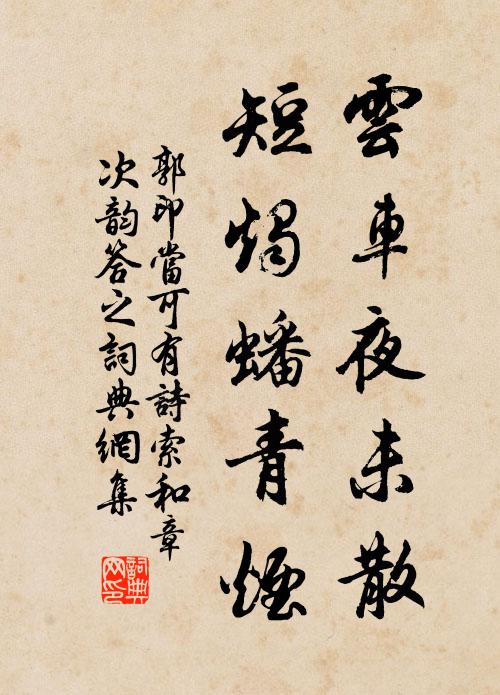 雲車夜未散
短燭蟠青煙
郭印當可有詩索和章
次韵答之詞典網集
詞典网印